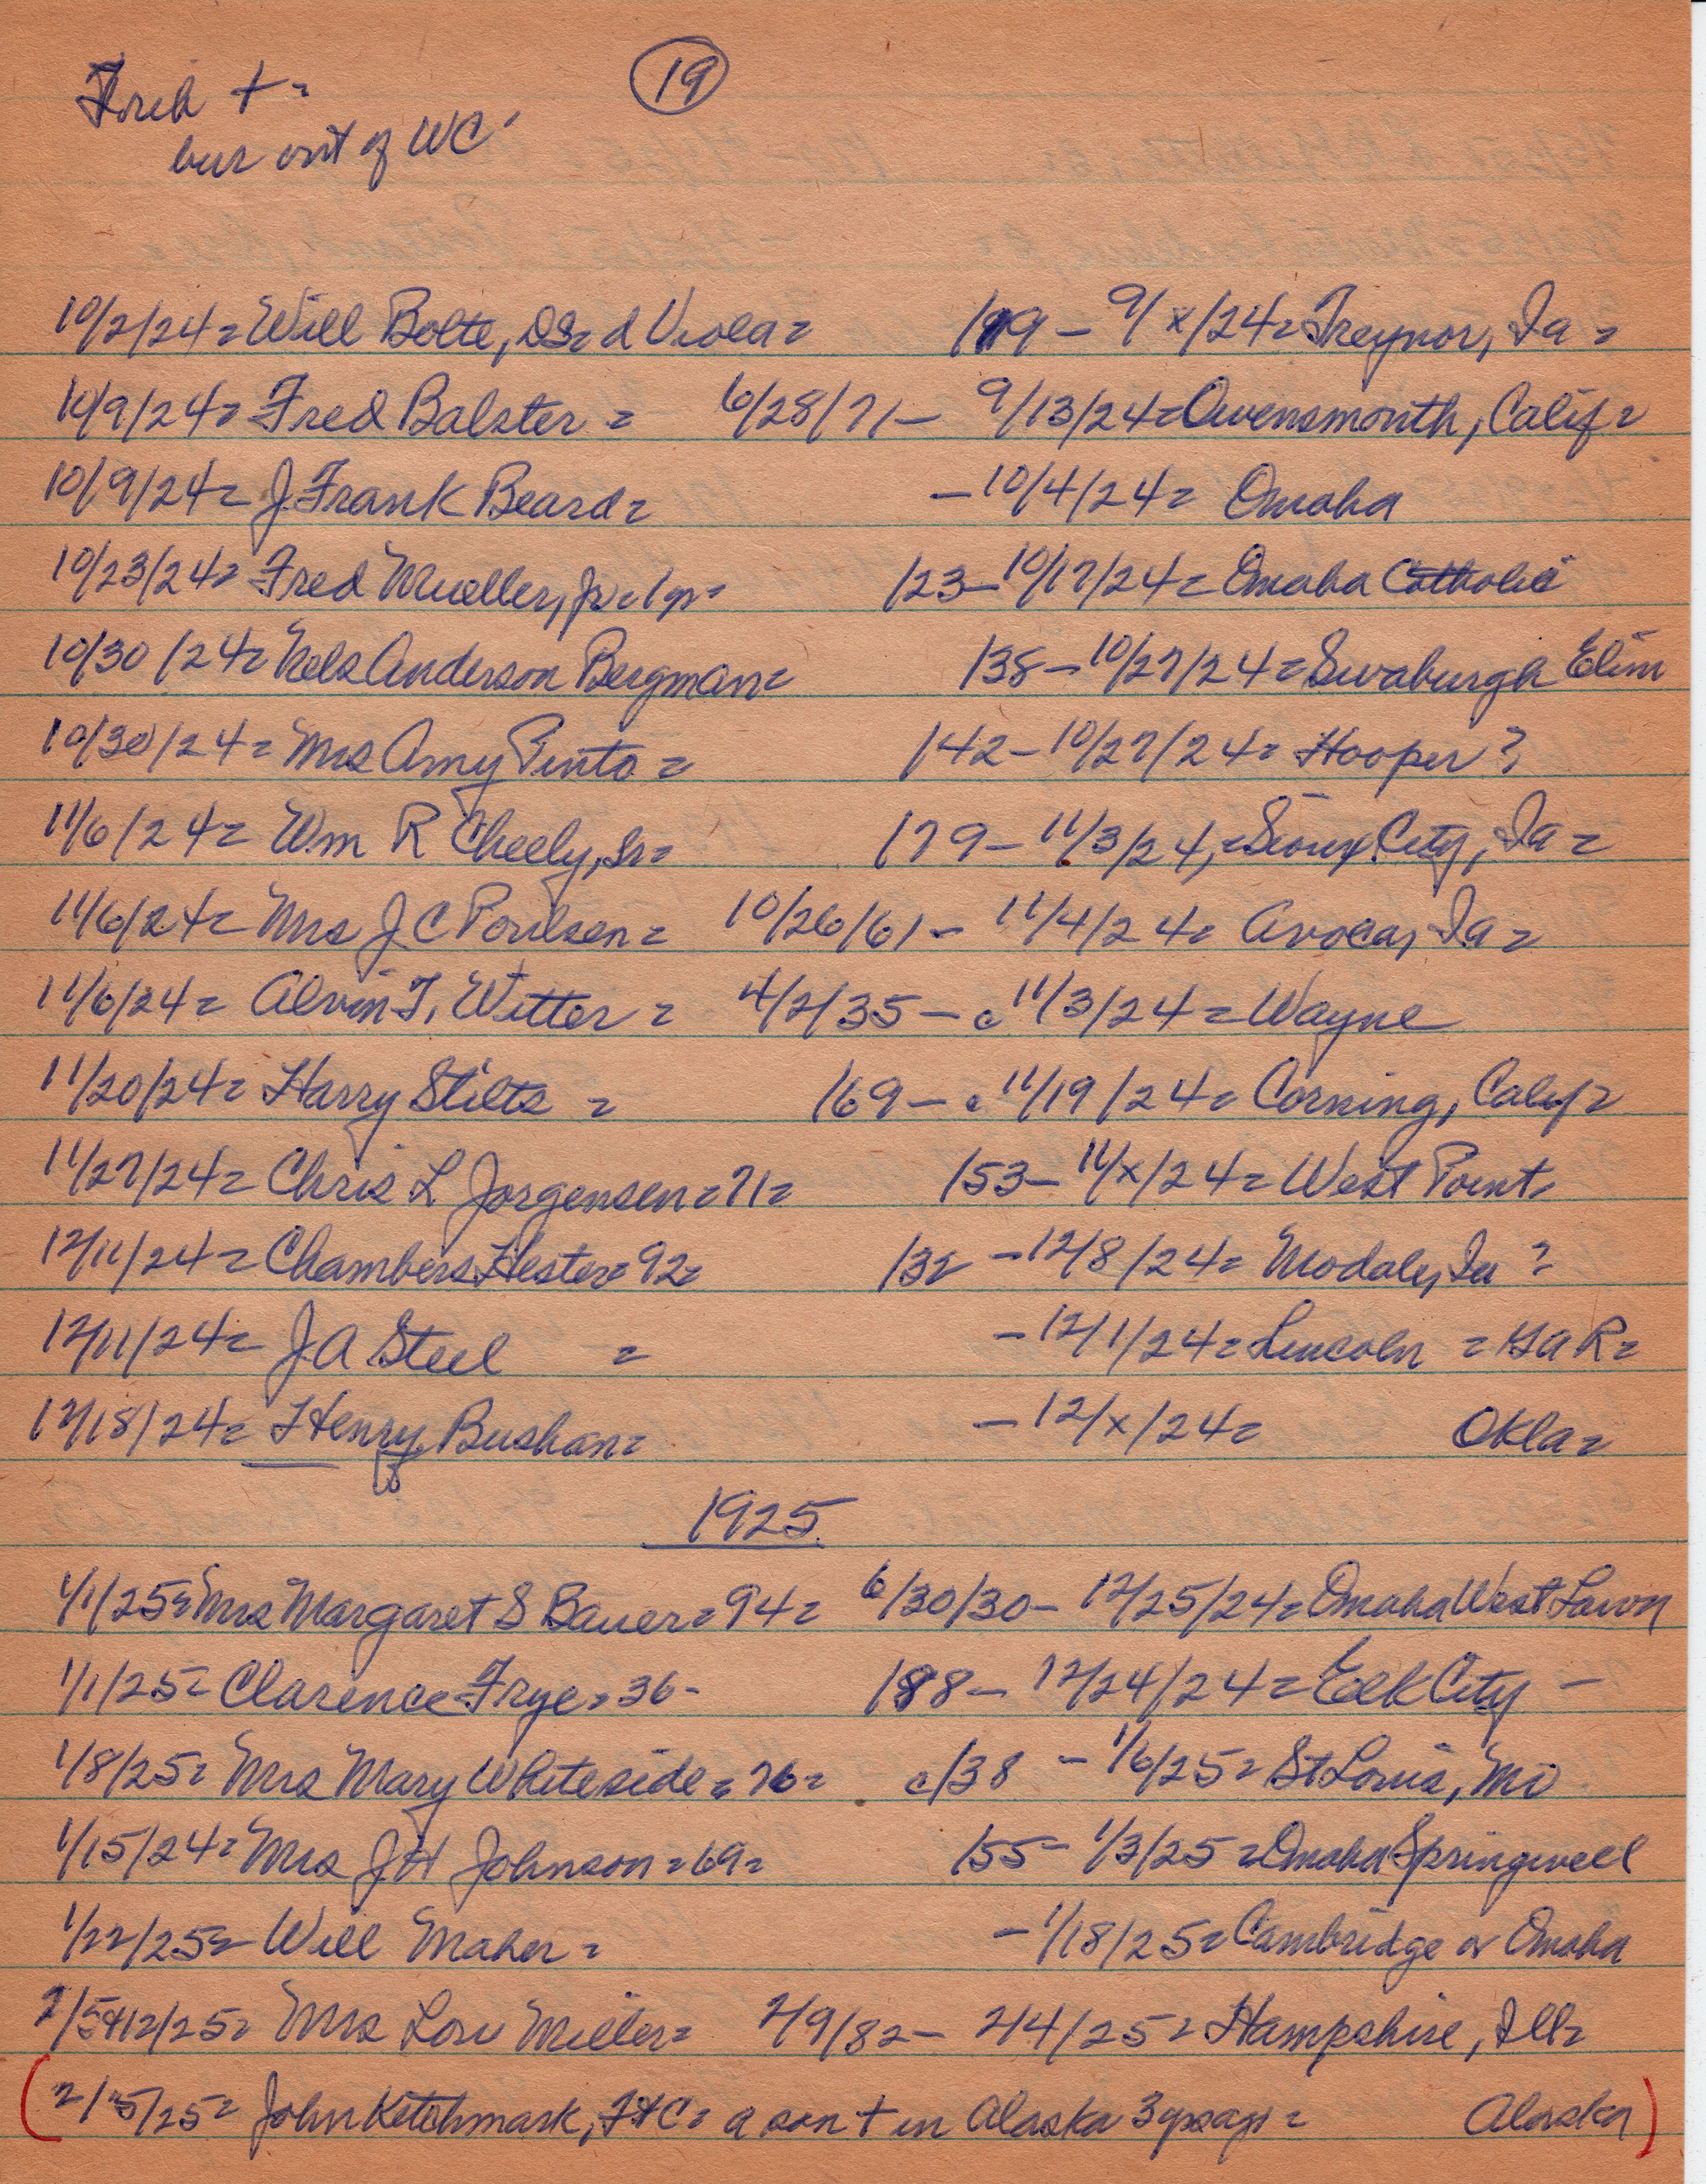 19
+ =
bur out of WC
10/2/24= Will Bolte, d Viola= 1/9/9 – 9/x/24= Treynor, Ia =
10/9/24= Fred Balster = 6/28/71 – 9/13/24= Owensmonth, Calif =
10/9/24= J. Frank Beard= – 10/4/24= Omaha
10/23/24= Fred Mueller, Jr= 1 yr= /23 – 10/17/24= Omaha Catholic
10/30/24= Nels Anderson Bergman= /38 – 10/27/24= Swaburgh Elim
10/30/24= Mrs Amy Pinto = /42 – 10/27/24= Hooper ?
11/6/24= Wm R Cheely, Sr= /79 – 11/3/24,= Sioux City, Ia =
11/6/24= Mrs J C Poulsen= 10/26/61 – 11/4/24= Avoca, Ia =
11/6/24= Alvin T. Witter = 4/2/35 – c 11/3/24 = Wayne
11/20/24= Harry Stilts = /69 – c 11/19/24= Corning, Calif =
11/27/24= Chris L Jorgensen=71= /53 – 11/x/24= West Point=
12/11/24= Chambers Hester= 92= /32 – 12/8/24= Modale, Ia ?
12/11/24= J A Steel = – 12/1/24= Lincoln = GAR=
12/18/24= Henry Bushan= – 12/x/24= Okla=
1925
1/1/25= Mrs Margaret S Bauer= 94= 6/30/30 – 12/25/24= Omaha West Lawn
1/1/25= Clarence Frye= 36 – /88 – 12/24/24= Elk City –
1/8/25= Mrs Mary Whiteside = 76= c/38 – 1/6/25= St Louis, Mo
1/15/24= Mrs J H Johnson= 69= /55 – 1/3/25= Omaha Springwell
1/22/25= Will Maher = – 1/18/25= Cambridge or Omaha
2/5+12/25= Mrs Lou Miller= 2/9/82 – 2/4/25= Hampshire, Ill=
(2/5/25= John Ketchmark, FtC= a son + in Alaska 3 yrs ago = Alaska)